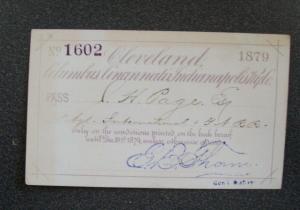 No 1602 Cleveland, 1879
Columbus, Cincinnati & Indianapolis R'y Co.
PASS J. H. Page, Esq
International & R.R.
Only on the conditions printed on the back hereof
until Dec. 31st 1879, unless otherwise ordered